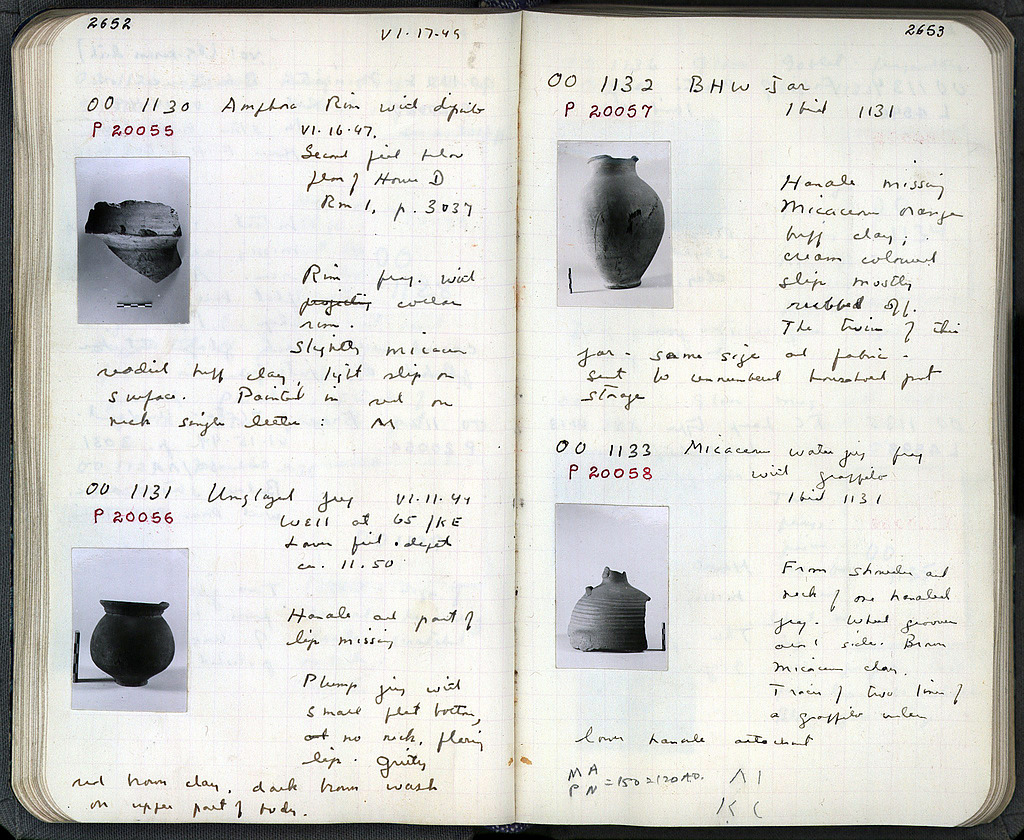 2652
VI-17-49
OO 1130 Amphora Rim with dipinto
P 20055
VI-16-47.
Second fill below
floor of House D
Rm 1, p. 3037
Rim frag. with
projecting collar
rim.
Slightly micaceous
reddish buff clay, light slip on
surface. Painted in red on
neck single letter: M
OO 1131 Unglazed jug VI-11-47
Well at 65/KE
Lower fill. depth
ca. 11.50
Handle and part of
lip missing
Plump jug with
small flat bottom,
no neck, flaring
lip. Gritty
red brown clay, dark brown wash
on upper part of body.
2653
OO 1132 BHW-Jar
P 20057
Ibid 1131
Handle missing
Micaceous orange
buff clay;
cream coloured
slip mostly
rubbed off.
The twin of this
jar - same size and fabric -
sent to unnumbered household pot
storage
OO 1133 Micaceous water jug frag
P 20058
with graffito
Ibid 1131
From shoulder and
neck of one handled
jug. Wheel grooves
side. Brown
micaceous clay.
Traces of two lines of
a graffito under
lower handle attachment
MA
PN = 150-2120 AD.
ΛΙ
K C